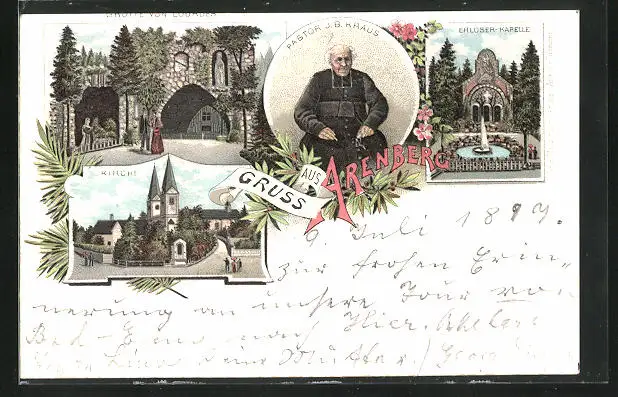 GROTTE VON LOURDES
PASTOR J.B. KRAUS
ERLÖSER-KAPELLE
KIRCHE
GRUSS
AUS
ARENBERG
9. Juli 1897.
zur frohen Erin-
nerung an unsere Tour von
Bad-Ems nach
Mutter